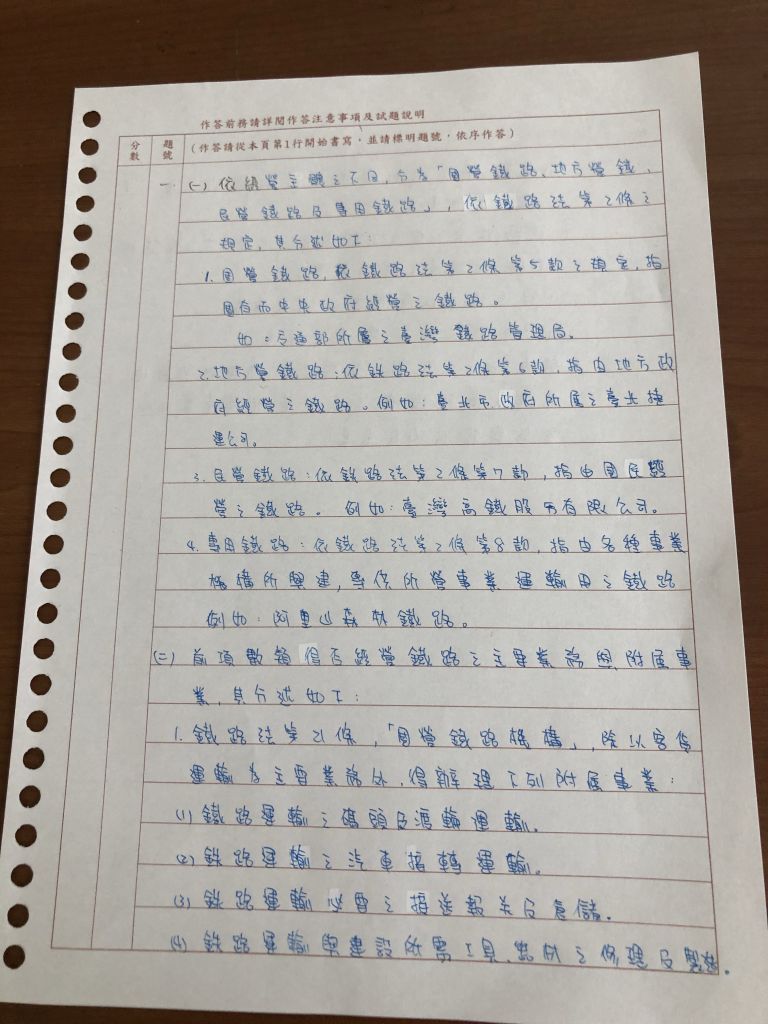 作答前務請詳閱作答注意事項及試題說明
分數 題號 (作答請從本頁第1行開始書寫,並請標明題號,依序作答)
一、(一) 依經營主體之不同,分為「國營鐵路、地方營鐵、
民營鐵路及專用鐵路」,依鐵路法第2條之
規定,其分述如下:
1. 國營鐵路,依鐵路法第2條第5款之規定,指
國有而中央政府經營之鐵路。
如:交通部所屬之臺灣鐵路管理局。
2. 地方營鐵路:依鉄路法第2條第6款,指由地方政
府經營之鐵路。例如:臺北市政府所屬之臺北捷
運公司。
3. 民營鐵路:依鉄路法第2條第7款,指由國民經
營之鐵路。例如:臺灣高鐵股份有限公司。
4. 專用鐵路:依鐵路法第2條第8款,指由各種事業
機構所興建,專供所營事業運輸用之鐵路
例如:阿里山森林鐵路。
(二) 前項數類得否經營鐵路之主要業務與附屬事
業,其分述如下:
1. 鐵路法第21條,「國營鐵路機構」,除以客貨
運輸為主要業務外,得辦理下列附屬事業:
(1) 鐵路運輸之碼頭及渡輪運輸。
(2) 鉄路運輸之汽車接轉運輸。
(3) 鉄路運輸必要之接送報关及倉儲。
(4) 鉄路運輸與建設所需工具、器材之修理及製造。